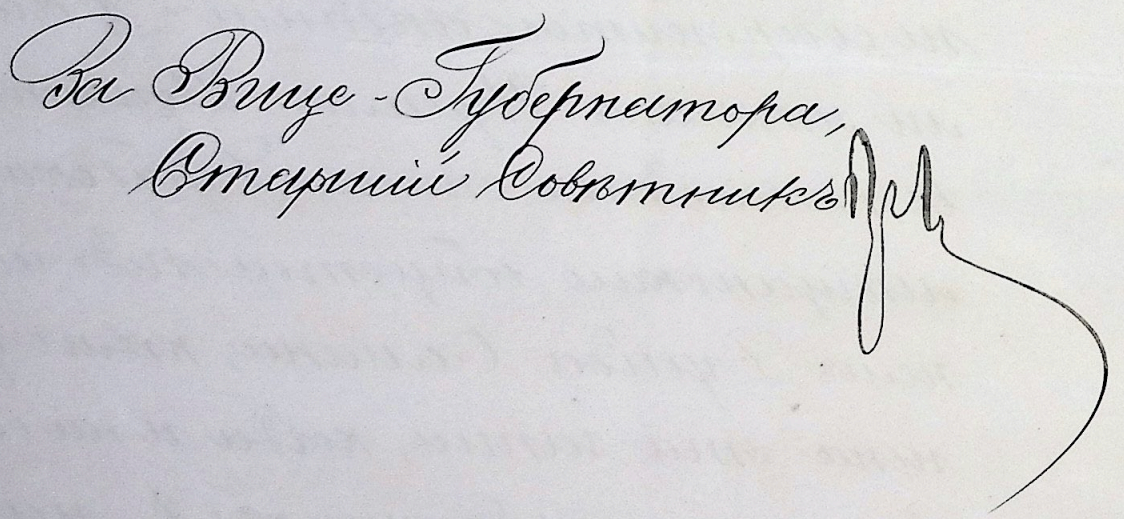 За Вице-Губернатора,
Старшій Совѣтникъ